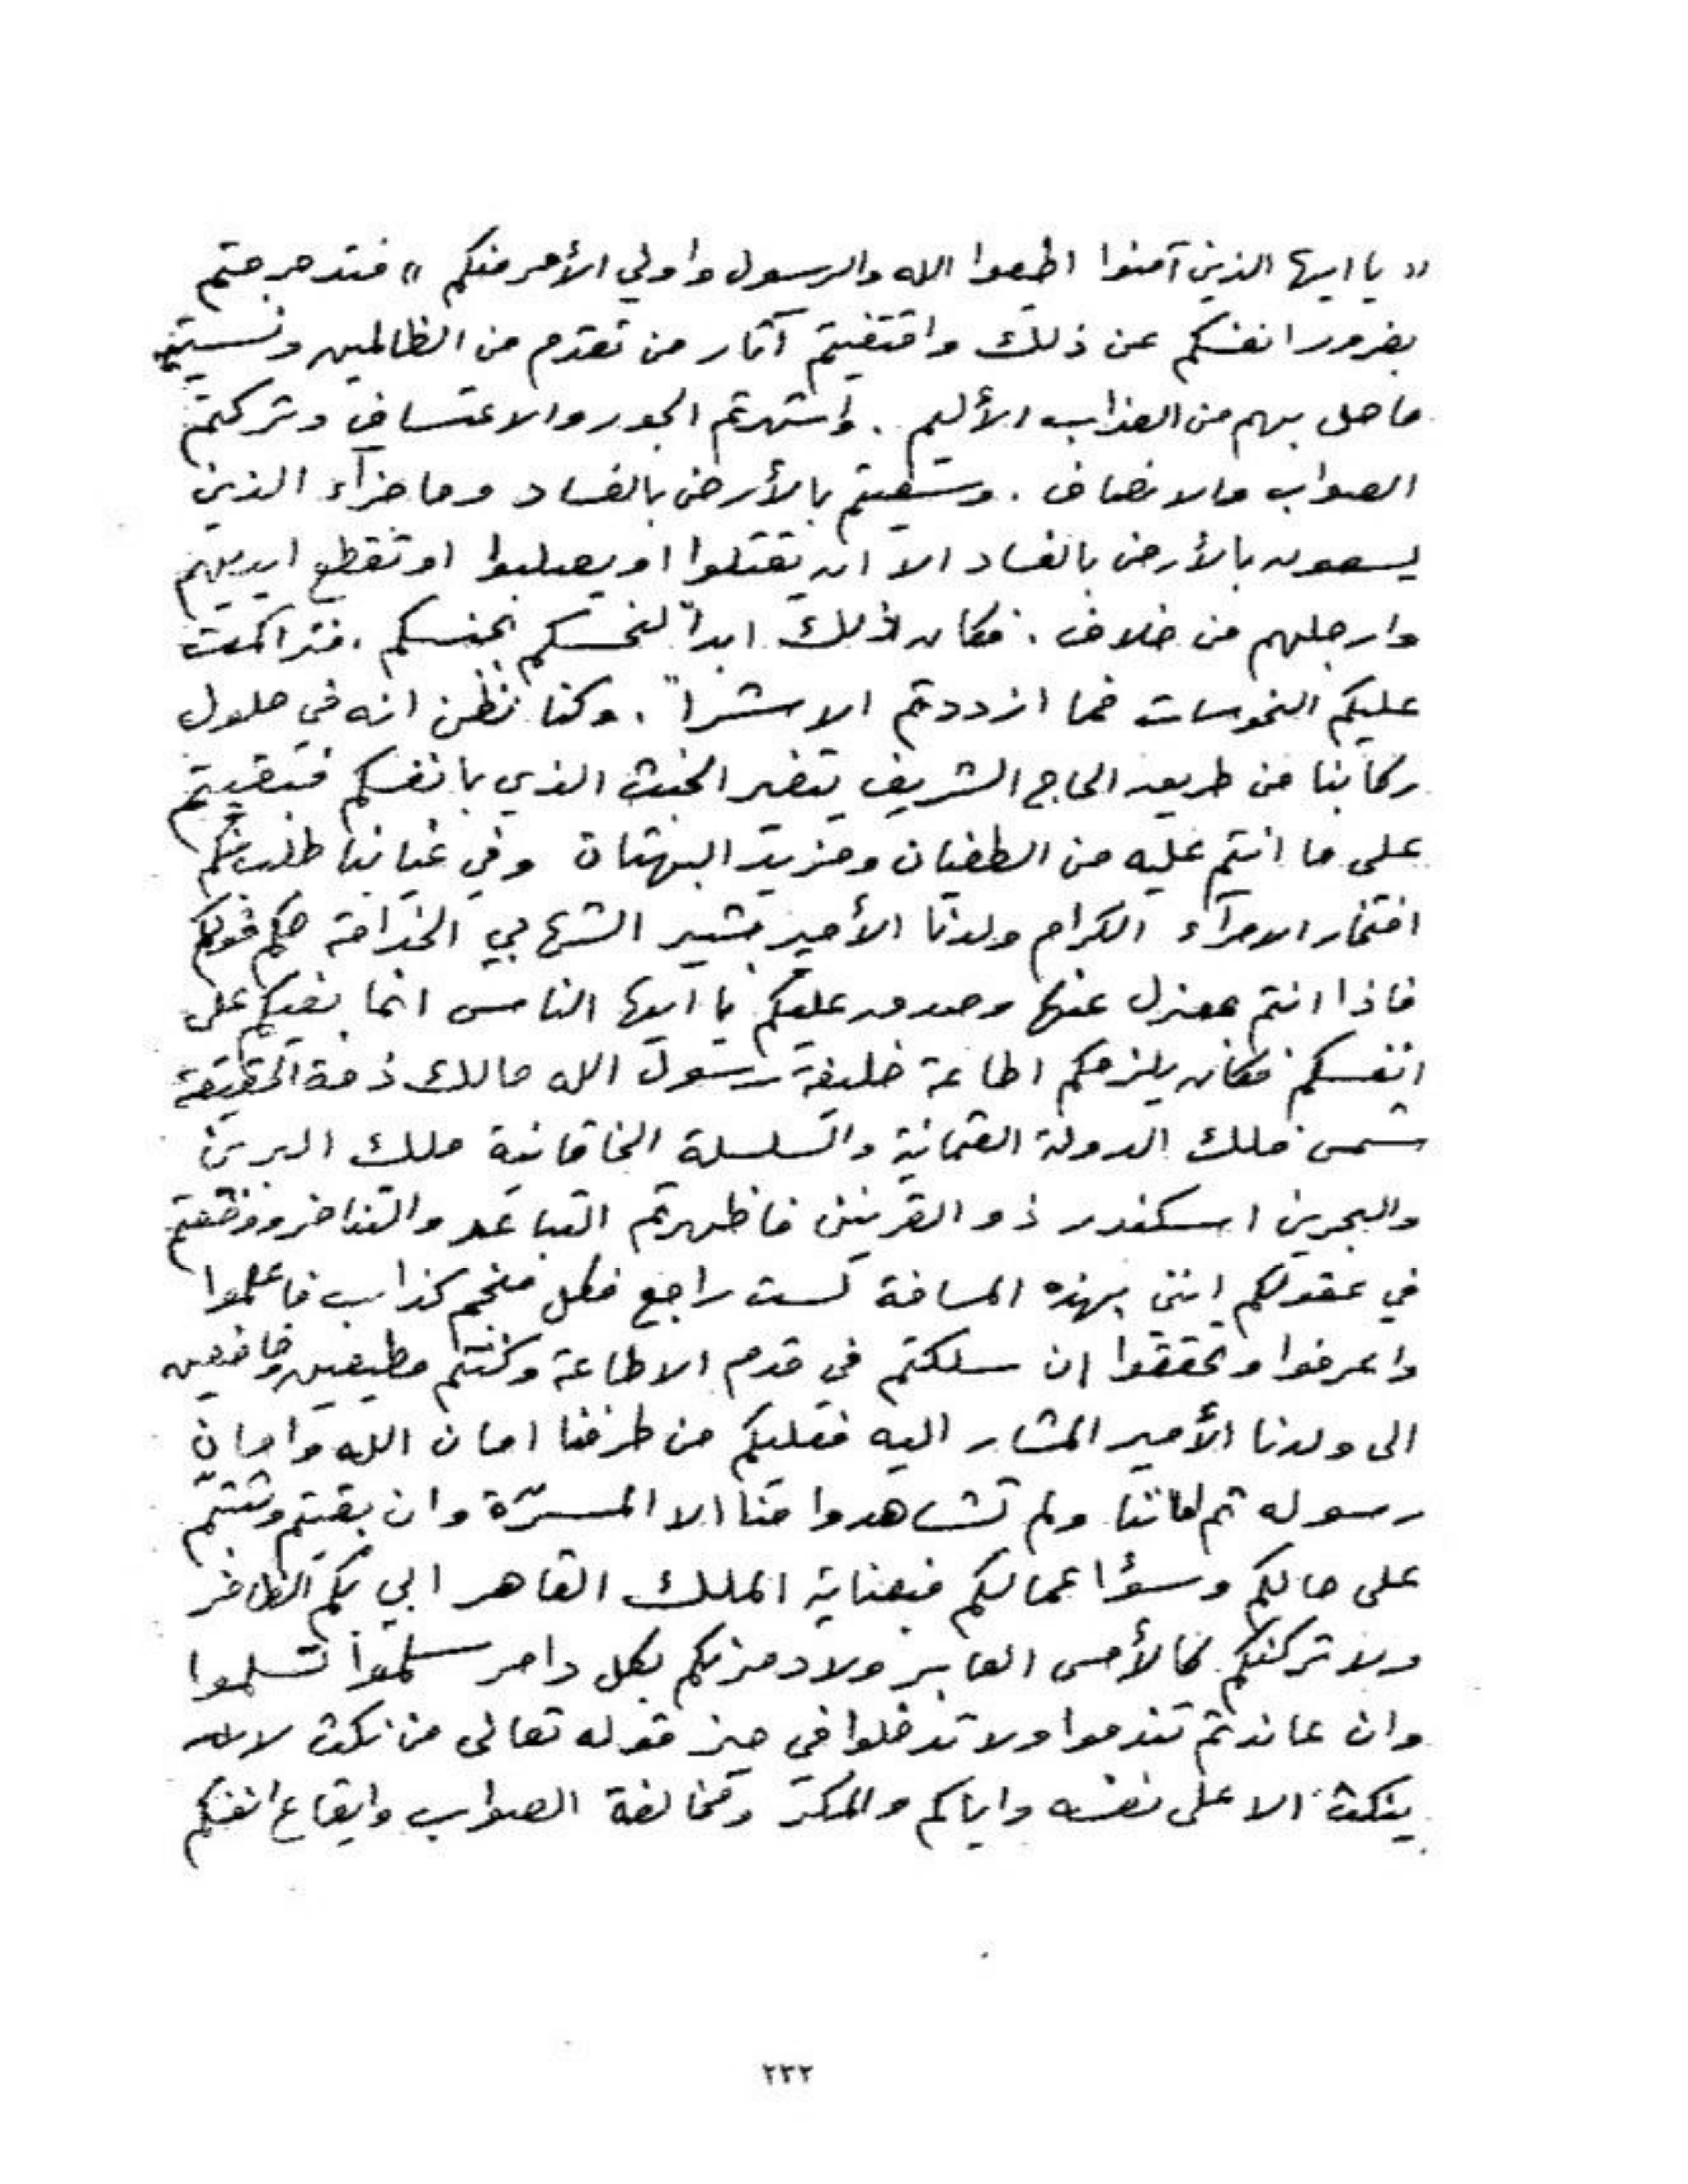 « يا ايها الذين آمنوا اطيعوا الله والرسول واولي الأمر منكم » فتدحرجتم
بغرور انفسكم عن ذلك واقتفيتم آثار من تقدم من الظالمين ونسيتم
ما حل بهم من العذاب الأليم . واشتهرتم الجور والاعتساف وتركتم
الصواب والانصاف . وسعيتم بالأرض بالفساد وما جزآء الذين
يسعون بالأرض بالفساد الا ان يقتلوا او يصلبوا او تقطع ايديهم
وارجلهم من خلاف . فكان ذلك ابداً لنحسكم . فتراكمت
عليكم النحوسات فما ازددتم الا شراً . وكنا نظن انه في حلول
ركابنا من طريق الحاج الشريف يتغير الخبث الذي بانفسكم فبقيتم
على ما انتم عليه من الطغيان ومزيد البهتان وفي غيابنا طلب منكم
افتخار الامرآء الكرام ولدنا الأمير بشير الشهابي الخزامة
فاذا انتم بمعزل عنها وصدق عليكم يا ايها الناس انما بغيكم على
انفسكم فكان يلزمكم اطاعة خليفة رسول الله مالك ذمة الحقيقة
شمس فلك الدولة العثمانية والسلسلة الخاقانية ملك البرين
والبحرين اسكندر ذو القرنين فاظهرتم التباعد والتنافر ووضعتم
في عقولكم انني بهذه المسافة لست راجع فكل منجم كذاب فاعلموا
واعرفوا وتحققوا ان سلكتم في قدم الاطاعة وكنتم مطيعين وخاضعين
الى ولدنا الأمير المشار اليه فعليكم من طرفنا امان الله وامان
رسوله ثم اماننا ولم تشاهدوا منا الا المسرّة وان بقيتم وثبتّم
على حالكم وسؤ اعمالكم فبعناية الملك القاهر ابي بكم الظافر
ولا تركنكم كالأمس الغابر ولا دمرنكم بكل دامر سلموا تسلموا
وان عاندتم تندموا ولا تدخلوا في حيز قوله تعالى من نكث لا
ينكث الا على نفسه واياكم والمكر ومخالفة الصواب وايقاع انفسكم
٢٣٢